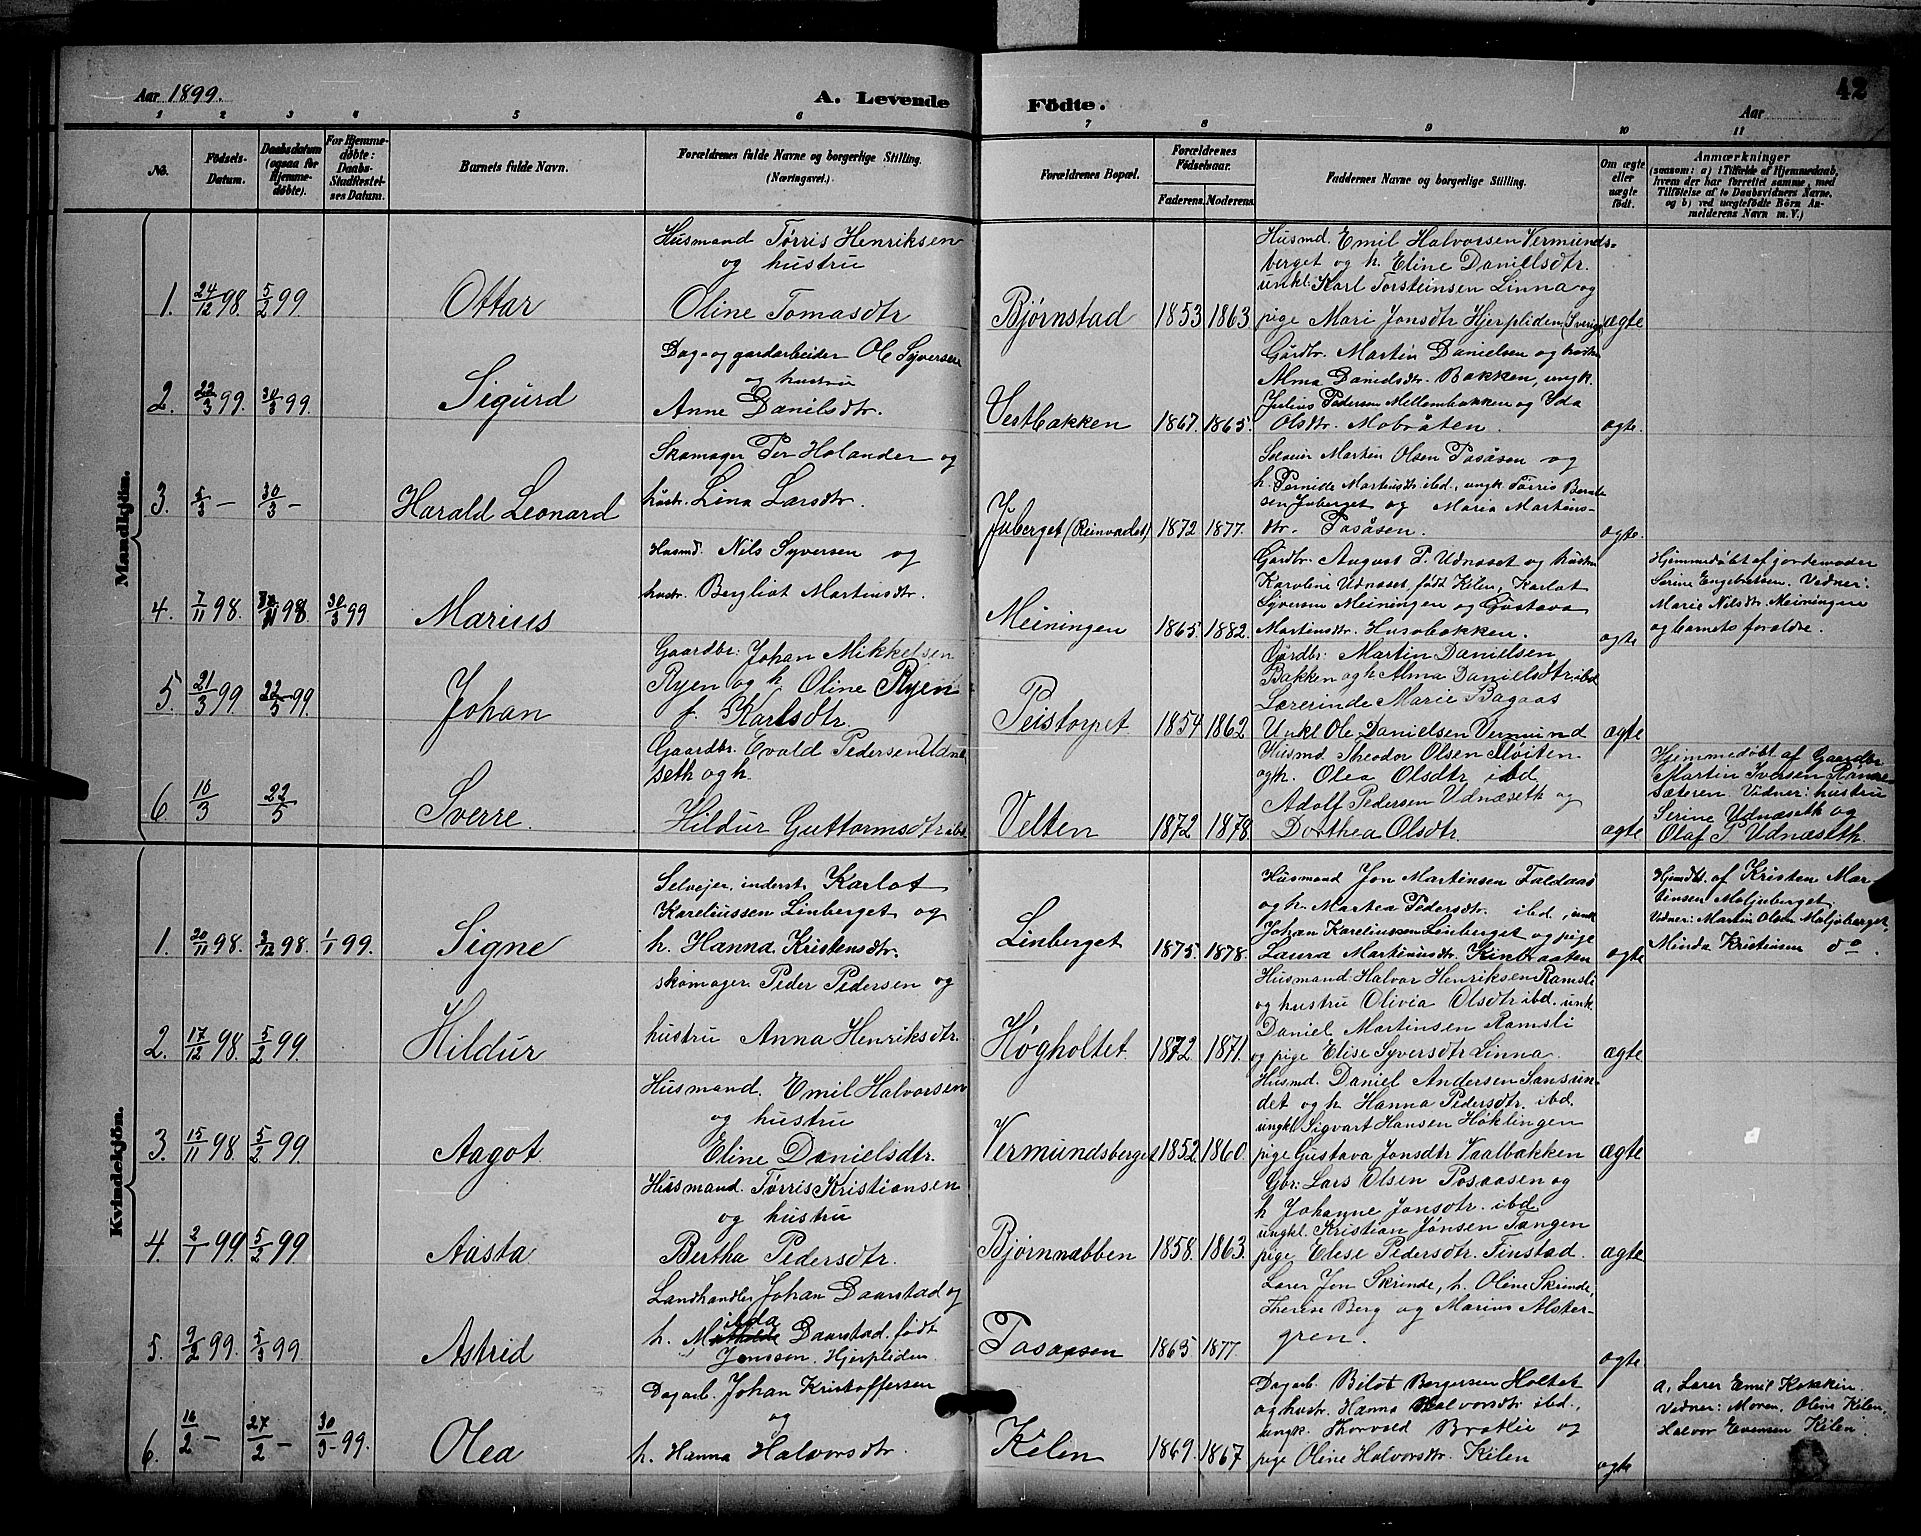 Aar 1899.
A. Levende Födte.
Aar
42
1 2 3 4 5 6 7 8 9 10 11
No.
Födsels-Datum.
Daabsdatum (ogsaa for Hjemmedøbte).
For Hjemmedøbte: Daabs-Stadfæstelses Datum.
Barnets fulde Navn.
Forældrenes fulde Navne og borgerlige Stilling. (Næringsvei.)
Forældrenes Bopæl.
Forældrenes Födselsaar.
Faderens. Moderens.
Faddernes Navne og borgerlige Stilling.
Om ægte eller uægte født.
Anmærkninger
(saasom: a) i Tilfælde af Hjemmedaab, hvem der har forrettet samme, med Tilföielse af to Daabsvidners Navne, og b) ved uægtefödte Börn Anmelderens Navn m. V.)
Mandkjön.
1. 24/12 98. 5/2 99
Ottar
Husmand Tørris Henriksen
og hustru
Oline Tomasdtr
Bjørnstad 1853 1863
Husmd. Emil Halvorsen Vermunds-
berget og h. Eline Danielsdtr.
unkl. Karl Torsteinsen Linna og
pige Mari Jonsdtr Hjerpliden (Sverige)
ægte
2. 22/3 99. 30/3 99.
Sigurd
Dag- og gardarbeider Ole Syversen
og hustru
Anne Danilsdtr.
Vestbakken 1867. 1865.
Gårdbr. Martin Danielsen og hustru
Alma Danielsdtr. Bakken, ungk.
Julius Pedersen Mellembakken og Ida
Olsdtr. Mobråten.
ægte.
3. 5/3 - 30/3 -
Harald Leonard
Skomager Per Holander og
hustr. Lina Larsdtr.
Juberget (Reinvadet) 1872 1877.
Selveier Martin Olsen Posåsen og
h. Pernille Martinsdtr ibd., ungk. Tørris Bernt-
sen Juberget og Maria Martins-
dtr. Posåsen.
ægte.
4. 7/11 98. 98. 30/3 99
Marius
Husmd. Nils Syversen og
hustr. Bergliot Martinsdtr.
Meiningen 1865 1882.
Gårdbr. August P. Udnæset og hustru
Karoline Udnæset, født Kilen, Karlot
Syversen Meiningen og Gustava
Martinsdtr. Husobakken.
ægte
Hjemmedøbt af jordemoder
Serine Engebretsen. Vidner:
Marie Nilsdtr. Meiningen
og barnets forældre.
5. 21/3 99. 22/5 99.
Johan
Gaardbr. Johan Mikkelsen
Ryen og h. Oline Ryen
f. Karlsdtr.
Peistorpet 1854 1862
Gårdbr: Martin Danielsen
Bakken og h Alma Danielsdtr. ibd
Lærerinde Marie Bagaas
Unkl Ole Danielsen Vermund
ægte
6 10/3 22/5
Sverre.
Gaardbr. Evald Pedersen Udnæ-
seth og h.
Hildur Guttormsdtr ibd
Velten 1872 1878
Husmd Theodor Olsen Fløiten
og h. Olea Olsdtr ibd
Adolf Pedersen Udnæseth og
Dorthea Olsdtr.
ægte
Hjemmedøbt af Gaardbr
Martin Iversen
sæteren. Vidner: hustru
Serine Udnæseth og
Olaf P Udnæseth.
Kvindekjön.
1. 20/11 98. 3/12 98. 1/1 99.
Signe
Selvejer, inderst Karlot
Kareliussen Linberget og
h. Hanna Kristensdtr.
Linberget 1875. 1878.
Husmand Jon Martinsen Faldaas
og h. Martea Pedersdtr. ibd, unk
Johan Kareliussen Linberget og pige
Laura Martinusdtr. Kinbraaten
ægte
Hjmdbt. af Kristen Mar-
tinsen Moljoberget.
Vidner: Martin Olsen Moljoberget,
Minda Kristensen do.
2. 17/12 98. 5/2 99.
Hildur
skomager Peder Pedersen og
hustru Anna Henriksdtr.
Høgholtet. 1872. 1871.
Husmand Halvor Henriksen Ramsli
og hustru Olivia Olsdtr ibd. unk.
Daniel Martinsen Ramsli
og pige Elise Syversdtr Linna.
ægte
3. 15/11 98. 5/2 99.
Aagot.
Husmand. Emil Halvorsen
og hustru
Eline Danielsdtr.
Vermundsberget 1852 1860.
Husmd. Daniel Andersen Sonsun-
det og h. Hanna Pedersdtr. ibd.
ungkl. Sigvart Hansen Høklingen
pige Gustava Jonsdtr Vaalbakken
ægte
4. 2/1 99 5/2 99.
Aasta
Husmand. Tørris Kristiansen
og hustru
Bertha Pedersdtr.
Bjørnnæbben 1858. 1863.
Gbr. Lars Olsen Posaasen og
h Johanne Jonsdtr. ibd
ungkl. Kristian Jonsen Tangen
pige Elise Pedersdtr. Finstad.
ægte
5. 9/2 99. 5/3 99.
Astrid
Landhandler Johan Daarstad og
h. Milda Daarstad, født
Jonssen, Hjerpliden.
Posaasen 1865 1877.
Lærer Jon Skrinde, h. Oline Skrinde,
Therese Berg og Marius Alster-
gren.
ægte
6. 16/2 - 27/2 - 30/3 99.
Olea
Dagarb. Johan Kristoffersen
og
h. Hanna Halvorsdtr.
Kilen 1869. 1867
Dagarb. Bilot Bergersen Holtet
og hustr. Hanna Halvorsdtr ibd.,
ungk. Thorvald Bratlie og
pige Oline Halvorsdtr. Kilen
ægte
a, Lærer Emil Kokkin.
Vidner: Moren, Oline Kilen,
Halvor Evensen Kilen.